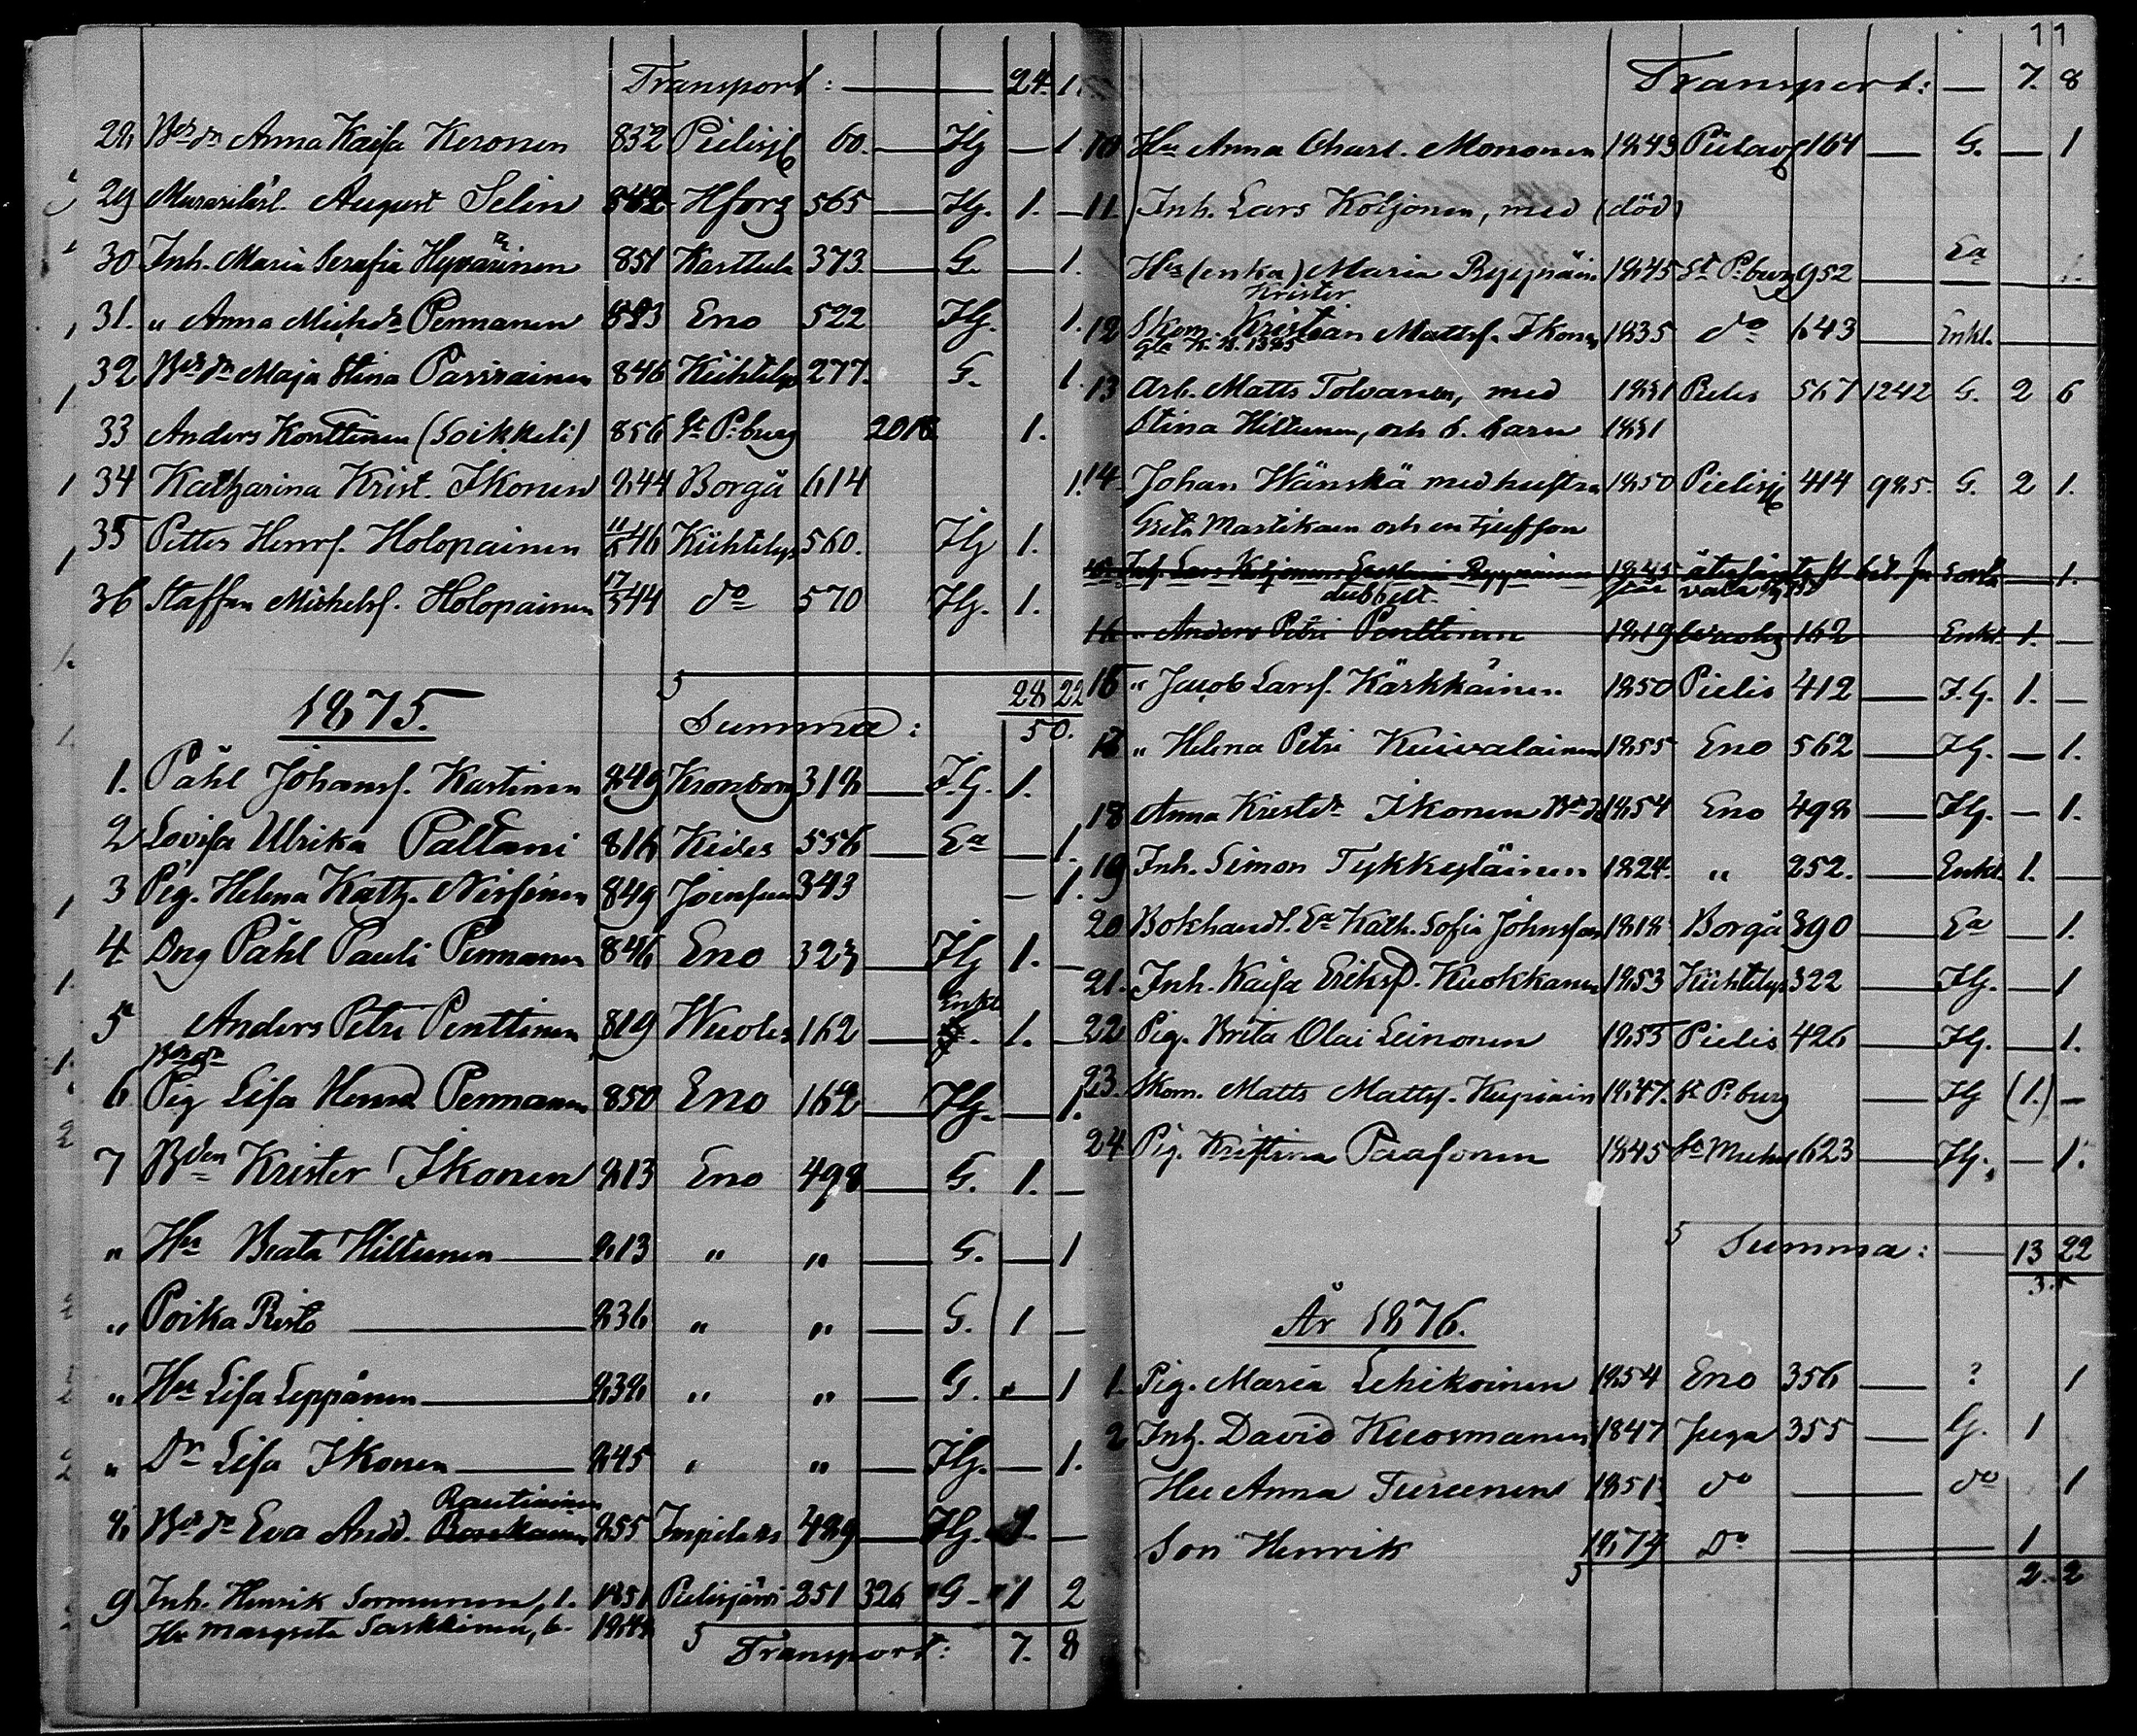 Transport: — 24. 1
28 Bdr dr Anna Kaisa Keronen 832 Pielisj 60. — Ig — 1.
29 August Selin 842 Hfors 565 — Ig. 1. —
30 Inh. Maria Serafia Hyvärinen 851 Karttula 373 — G. — 1.
31. " Anna Michdr Pennanen Eno 522 Ig. 1.
32 Bdr dr Maja Stina Parviainen 846 Kiihtelys 277. G. 1.
33 Anders Konttinen (Soikkeli) 856 St P:burg 2018 1.
34 Katharina Krist. Ikonen 844 Borgå 614 1.
35 Petter Henrs. Holopainen 46 Kiihtelys 560. Ig 1.
36 Staffan Michelss. Holopainen 17/3 44 do 570 Ig. 1.
28 22
1875. Summa: 50.
1. Påhl Johanss. Kartinen 849 Kronborg 318 — I.G. 1.
2 Lovisa Ulrika Paltani 816 Kides 556 — Ea — 1.
3 Pig. Helena Kath. Nissinen 849 Joensuu 343 — 1.
4 Dng Påhl Pauli Pennanen 846 Eno 323 — Ig 1. —
Enkl
5 Anders Petri Penttinen 819 Wuoles 162 — 1. —
6 Pig Lisa Henrd Pennanen 850 Eno 162 — Ig. — 1.
7 Bden Krister Ikonen 813 Eno 498 — G. 1. —
" Hu Beata Hiltunen — 813 " " — G. — 1
" Poika Risto — 836 " " — G. 1 —
" Hu Lisa Leppänen — 838 " " — G. " 1
" Dr Lisa Ikonen — 845 " " — Ig. — 1.
Rautiainen
8 Bdr dr Eva Andd. 855 Impilaks 489 — Ig. 1. —
9 Inh. Henrik Sormunen, 1. 1851 Pielisjärvi 251 326 G 1 2
Hu Margreta Sarkkinen, b.
Transport: 7. 8
11
Transport: — 7. 8
10 Hu Anna Charl. Mononen 1843 Pielav 164 — G. — 1
11. Inh. Lars Koljonen, med (död)
Hu (enka) Maria Ryypnäin 1845 St P:burg 952 — Ea — 1.
Krister
12 Skom. Kristian Mattss. Ikonen 1835 do 643 — Enkl.
13 Arb. Matts Tolvanen, med 1831 Pielis 567 1242 G. 2 6
Stina Hiltunen, och 6. barn 1831
14. Johan Wänskä med hustru 1850 Pielisj 414 985. G. 2 1.
Greta Martikaen och en
dubbelt.
16 " Anders Petri Penttinen 1819 162 Enkl. 1. —
15 " Jacob Larss. Kärkkäinen 1850 Pielis 412 — I.G. 1. —
" Helena Petri Kuivalainen 1855 Eno 562 — Ig. — 1.
18 Anna Kristdr Ikonen 1854 Eno 498 — Ig. — 1.
19 Inh. Simon Tykkyläinen 1824. " 252. — Enkl. 1. —
20 Bokhandl. Ea Kath. Sofia Johnsson 1818 Borgå 390 — Ea — 1.
21. Inh. Kaisa Eriksd. Kuokkanen 1853 Kiihtelys 322 — Ig. — 1
22 Pig. Brita Olai Leinonen 1855 Pielis 426 — Ig. — 1.
23. Skom. Matts Mattss. Kupiain 1847. St P:burg — Ig (1.) —
24 Pig. Kristina Paasonen 1845 St Michel 623 — Ig. — 1.
Summa: — 13 22
År 1876.
1. Pig. Maria Lehikoinen 1854 Eno 356 — ? 1
2 Inh. David Kuosmanen 1847 Juga 355 — G. 1
Hu Anna Turunen 1851 do — do 1
Son Henrik 1874 Do — 1
2. 2